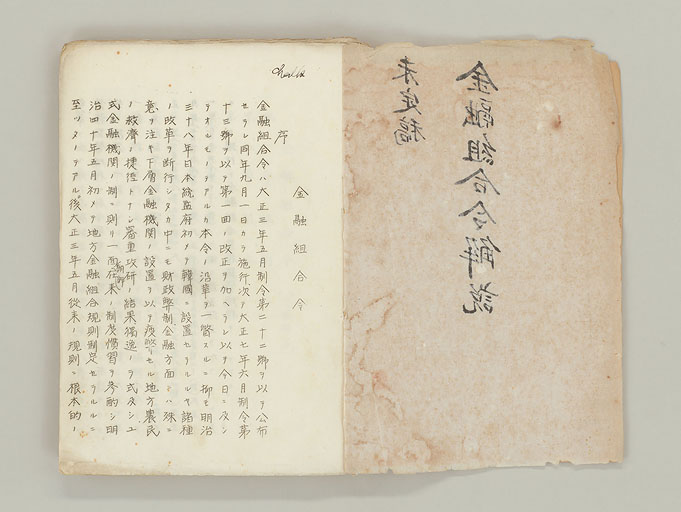 金融組合令解説
未定稿
金融組合令
序
金融組合令ハ大正三年五月制令第二十二號ヲ以テ公布
セラレ同年九月一日カラ施行次テ大正七年六月制令第
十三號ヲ以テ第一回ノ改正ヲ加ヘラレ以テ今日ニ及ン
テオルモノテアルカ本令ノ沿革ヲ一瞥スルニ抑モ明治
三十八年日本統監府初メテ韓國ニ設置セラルルヤ諸種
ノ改革ヲ断行シタカ中ニモ財政弊制金融方面ニハ殊ニ
意ヲ注キ下層金融機関ノ設置ヲ以テ疲弊セル地方農民
ノ救濟ノ捷径トナシ審重攻研ノ結果獨逸ノラ式及シユ
式金融機関ノ制ニ則リ一面在来ノ朝鮮制度慣習ヲ参酌シ明
治四十年五月初メテ地方金融組合規則制定セラルルニ
至ツタノテアル後大正三年五月従来ノ規則ニ根本的ノ